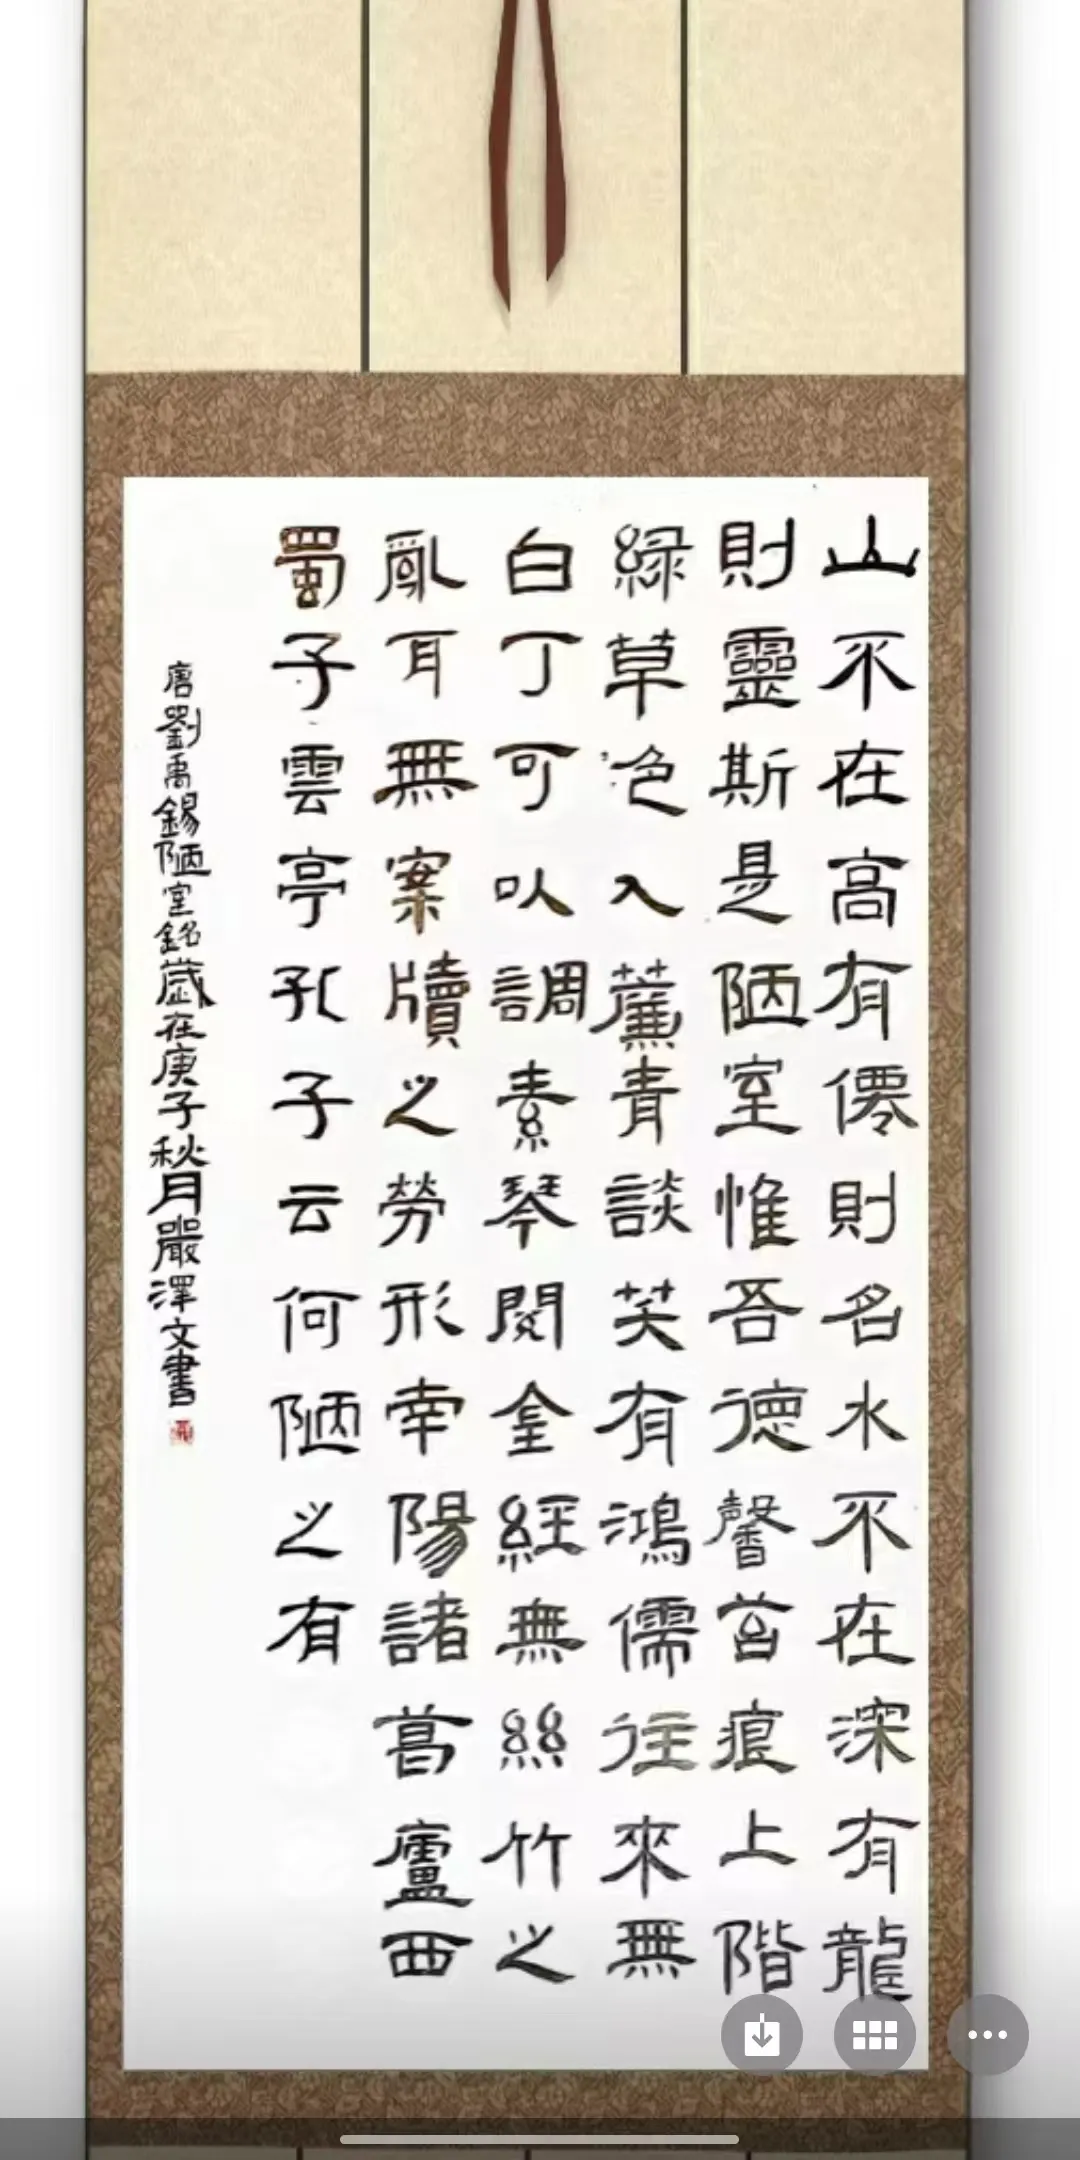 山不在高有僊則名水不在深有龍
則靈斯是陋室惟吾德馨苔痕上階
綠草色入簾青談笑有鴻儒往來無
白丁可以調素琴閱金經無絲竹之
亂耳無案牘之勞形南陽諸葛廬西
蜀子雲亭孔子云何陋之有
唐劉禹錫陋室銘歲在庚子秋月嚴澤文書